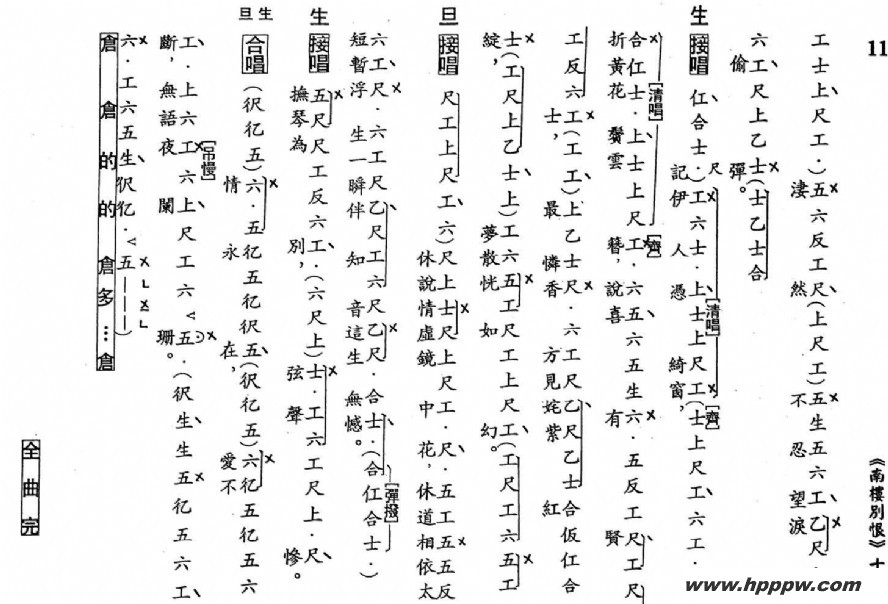 11
《南樓別恨》 十
工士上尺工.)五六反工尺(上尺工)五生五六工乙尺
淒 然 不忍望淚
六工尺上乙士(士乙士合
偷 彈。
生 接唱 仜合士.)工六士.上士上尺工(士上尺工六工.
尺 [清唱] [齊]
記伊 人 憑 綺窗,
合仜士.上士上尺工.六五六五生六.五反工尺工尺
[清唱] [齊]
折黃花 鬢雲 簪,說喜 有 賢
工反六工(工工)上乙士尺.六工尺乙尺乙士合仮仜合
士, 最 憐香 方見姹紫 紅
士(工尺上乙士上)工六五工尺工上尺工(工尺工六五工
綻, 夢散恍 如 幻。
旦 接唱 尺工上尺工六)尺上士尺上尺工.尺.五工五五反
休說情虛鏡 中 花,休道相依太
六工尺.六工尺乙尺工六尺乙尺.合士.(合仜合士.)
[彈撥]
短暫浮 生一瞬伴 知 音這生 無憾。
生 接唱 五尺尺工反六工.(六尺上)士.工六工尺上.尺.
撫琴為 別, 弦 聲 慘。
生 旦 合唱 (伬亿五)六.五亿五亿伬五(伬亿五)六亿五亿五六
情 永 在, 愛不
工.上六工六上尺工六<五.(伬生生五亿五六工
[吊慢]
斷,無語夜 闌 珊。
六.工六五生伬亿.<五———)
倉 倉 的 的 倉 多 … 倉
全曲完
www.hpppw.com